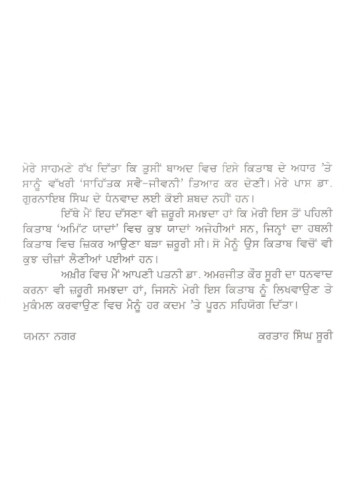 ਮੇਰੇ ਸਾਹਮਣੇ ਰੱਖ ਦਿੱਤਾ ਕਿ ਤੁਸੀਂ ਬਾਅਦ ਵਿਚ ਇਸੇ ਕਿਤਾਬ ਦੇ ਅਧਾਰ 'ਤੇ
ਸਾਨੂੰ ਵੱਖਰੀ 'ਸਾਹਿੱਤਕ ਸਵੈ-ਜੀਵਨੀ' ਤਿਆਰ ਕਰ ਦੇਣੀ। ਮੇਰੇ ਪਾਸ ਡਾ.
ਗੁਰਨਾਇਬ ਸਿੰਘ ਦੇ ਧੰਨਵਾਦ ਲਈ ਕੋਈ ਸ਼ਬਦ ਨਹੀਂ ਹਨ।
ਇੱਥੇ ਮੈਂ ਇਹ ਦੱਸਣਾ ਵੀ ਜ਼ਰੂਰੀ ਸਮਝਦਾ ਹਾਂ ਕਿ ਮੇਰੀ ਇਸ ਤੋਂ ਪਹਿਲੀ
ਕਿਤਾਬ 'ਅਮਿੱਟ ਯਾਦਾਂ' ਵਿਚ ਕੁਝ ਯਾਦਾਂ ਅਜੇਹੀਆਂ ਸਨ, ਜਿਨ੍ਹਾਂ ਦਾ ਹਥਲੀ
ਕਿਤਾਬ ਵਿਚ ਜ਼ਿਕਰ ਆਉਣਾ ਬੜਾ ਜ਼ਰੂਰੀ ਸੀ। ਸੋ ਮੈਨੂੰ ਉਸ ਕਿਤਾਬ ਵਿਚੋਂ ਵੀ
ਕੁਝ ਚੀਜ਼ਾਂ ਲੈਣੀਆਂ ਪਈਆਂ ਹਨ।
ਅਖ਼ੀਰ ਵਿਚ ਮੈਂ ਆਪਣੀ ਪਤਨੀ ਡਾ. ਅਮਰਜੀਤ ਕੌਰ ਸੂਰੀ ਦਾ ਧਨਵਾਦ
ਕਰਨਾ ਵੀ ਜ਼ਰੂਰੀ ਸਮਝਦਾ ਹਾਂ, ਜਿਸਨੇ ਮੇਰੀ ਇਸ ਕਿਤਾਬ ਨੂੰ ਲਿਖਵਾਉਣ ਤੇ
ਮੁਕੰਮਲ ਕਰਵਾਉਣ ਵਿਚ ਮੈਨੂੰ ਹਰ ਕਦਮ 'ਤੇ ਪੂਰਨ ਸਹਿਯੋਗ ਦਿੱਤਾ।
ਯਮਨਾ ਨਗਰ ਕਰਤਾਰ ਸਿੰਘ ਸੂਰੀ